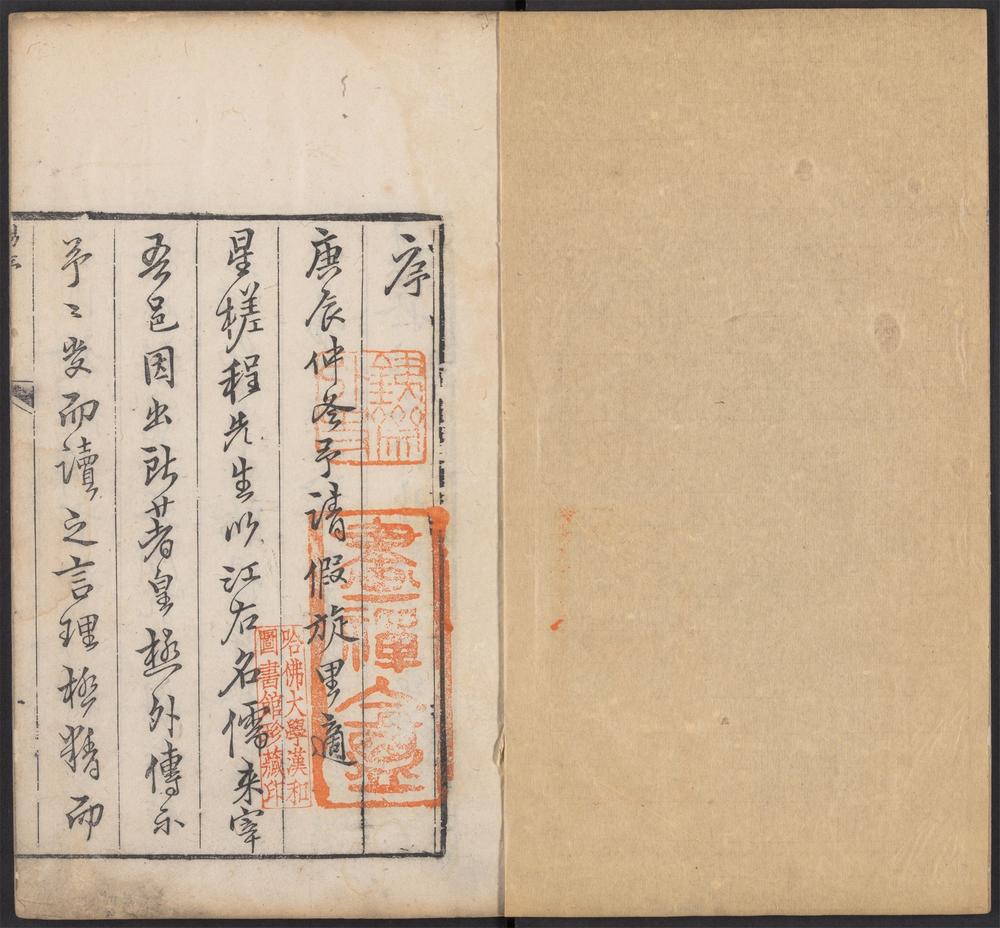 序
庚辰仲冬予請假旋里適
星槎程先生以江右名儒来宰
吾邑因出所著皇極外傳示
予〻受而讀之言理極精而
哈佛大學漢和
圖書館珍藏印